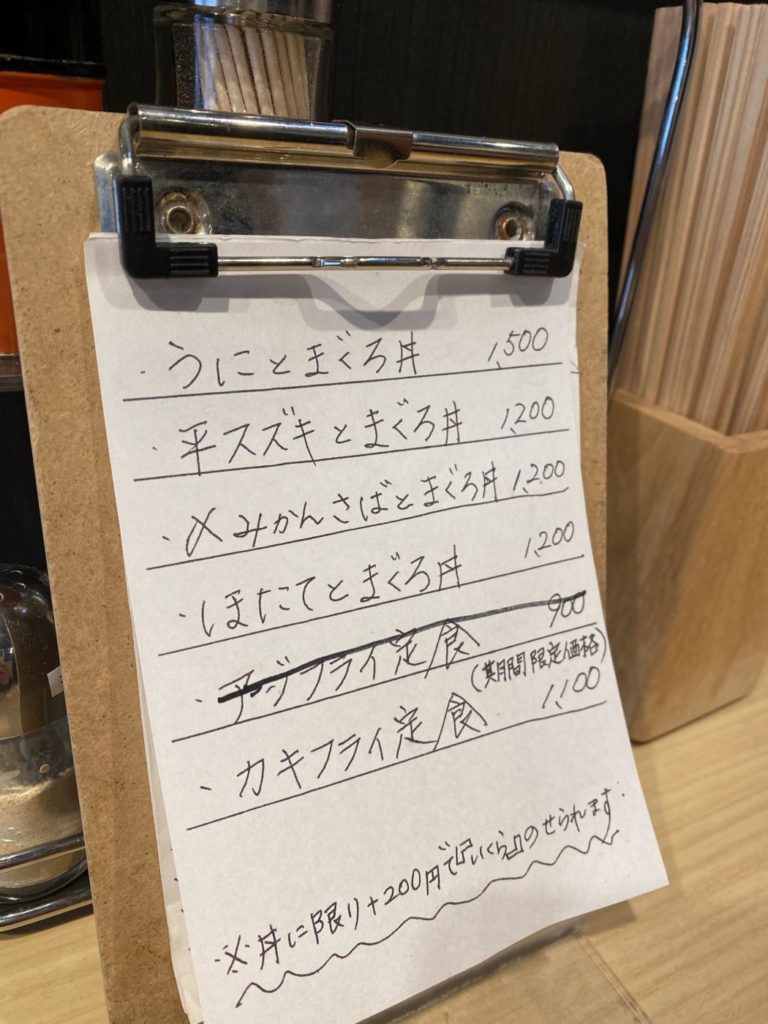 ・うにとまぐろ丼 1,500
・平スズキとまぐろ丼 1,200
・〆みかんさばとまぐろ丼 1,200
・ほたてとまぐろ丼 1,200
・アジフライ定食 900
(期間限定価格)
・カキフライ定食 1,100
※丼に限り+200円で『いくら』のせられます: